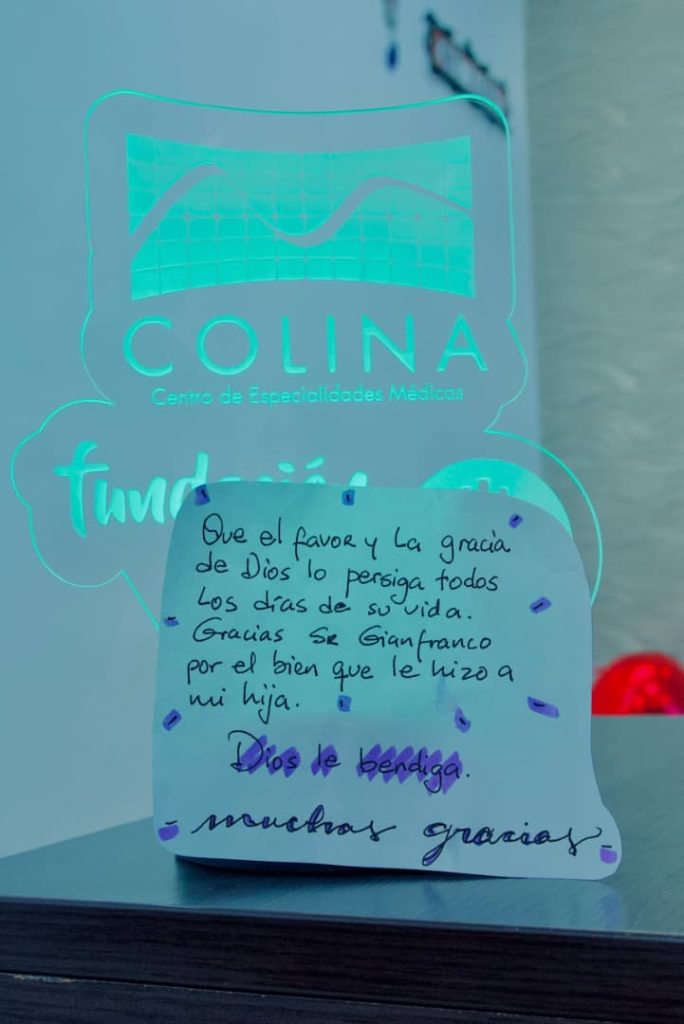 COLINA
Centro de Especialidades Médicas
Que el favor y La gracia
de Dios lo persiga todos
Los días de su vida.
Gracias Sr Gianfranco
por el bien que le hizo a
mi hija.
Dios le bendiga.
muchas gracias